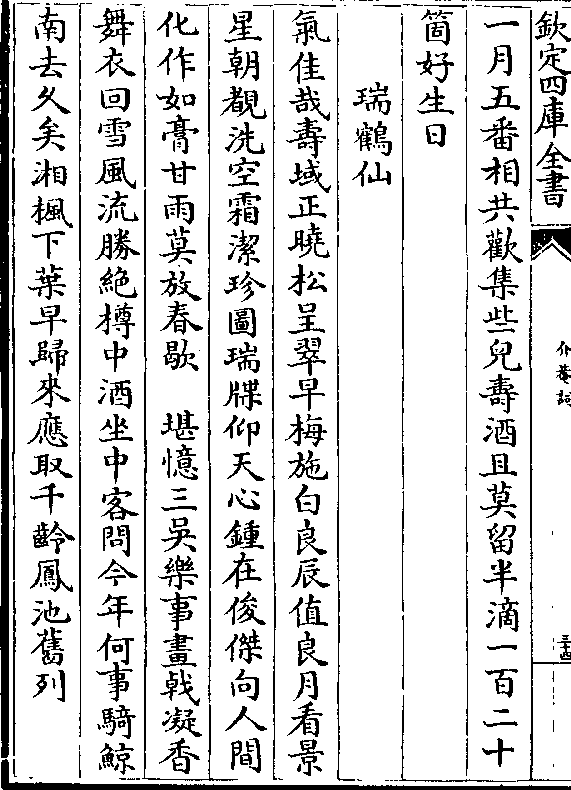 欽定四庫全書
介菴詞
三十四
一月五番相共歡集些兒壽酒且莫留半滴一百二十
箇好生日
瑞鶴仙
氣佳哉壽域正曉松呈翠早梅施白良辰值良月看景
星朝覩洗空霜潔珍圖瑞牒仰天心鍾在俊傑向人間
化作如膏甘雨莫放春歇 堪憶三吳樂事畫戟凝香
舞衣回雪風流勝絶樽中酒坐中客問今年何事騎鯨
南去久矣湘楓下葉早歸來應取千齡鳳池舊列